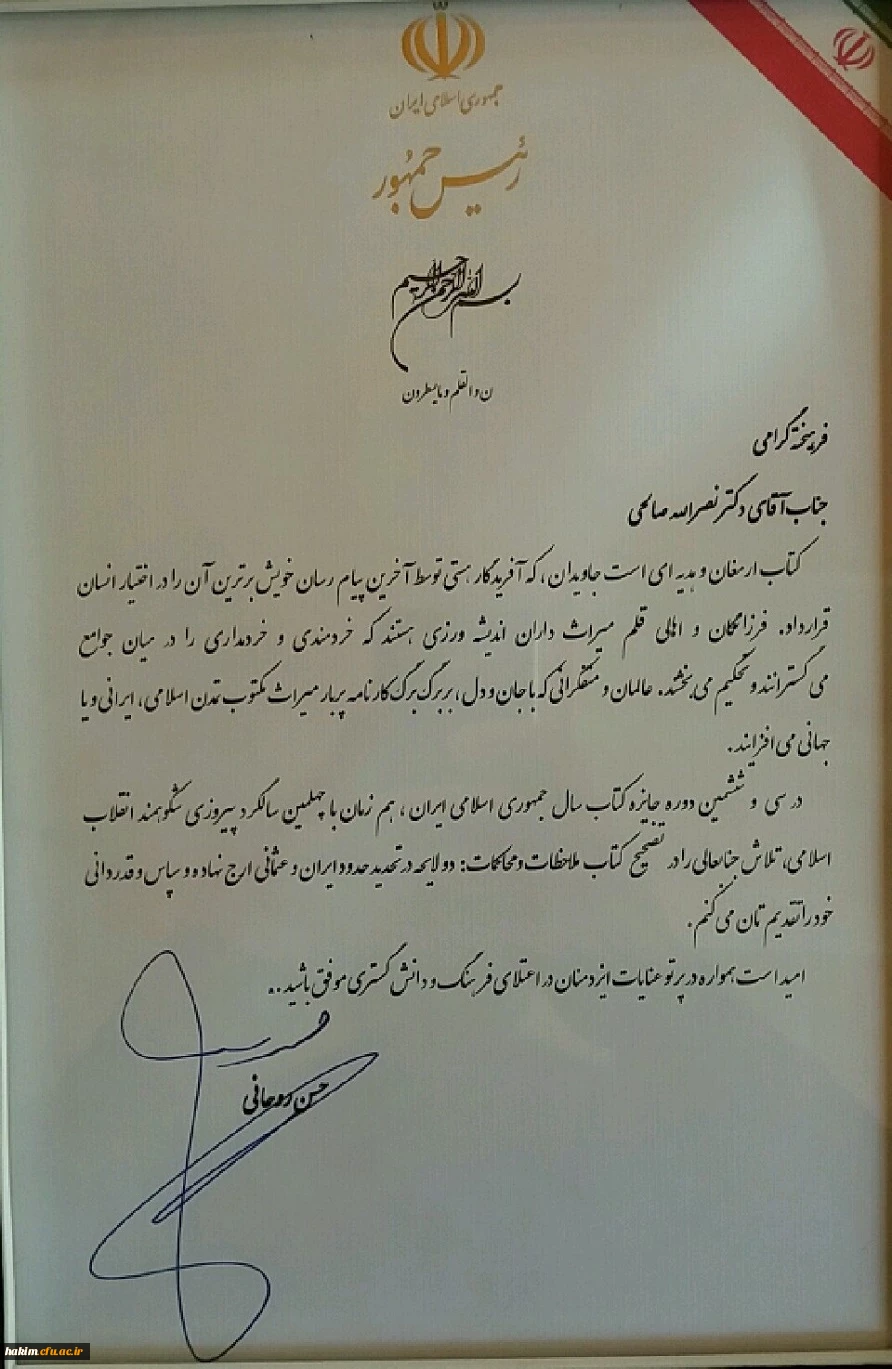 جمهوری اسلامی ایران
رئیس جمهور
بسم الله الرحمن الرحیم
ن و القلم و مایسطرون
فرهیخته گرامی
جناب آقای دکتر نصرالله صالحی
کتاب ارمغان و هدیه ای است جاویدان، که آفریدگار هستی توسط آخرین پیام رسان خویش برترین آن را در اختیار انسان
قرارداد. فرزانگان و اهالی قلم میراث داران اندیشه ورزی هستند که خردمندی و خردمداری را در میان جوامع
می گسترانند و تحکیم می بخشند. عالمان و متفکرانی که با جان و دل، بر برگ برگ کارنامه پربار میراث مکتوب تمدن اسلامی، ایرانی و یا
جهانی می افزایند.
در سی و ششمین دوره جایزه کتاب سال جمهوری اسلامی ایران، هم زمان با چهلمین سالگرد پیروزی شکوهمند انقلاب
اسلامی، تلاش جنابعالی را در تصحیح کتاب ملاحظات و محاکمات: دو لایحه در تحدید حدود ایران و عثمانی ارج نهاده و سپاس و قدردانی
خود را تقدیم تان می کنم.
امید است همواره در پرتو عنایات ایزد منان در اعتلای فرهنگ و دانش گستری موفق باشید..
حسن روحانی
hakim.cfu.ac.ir